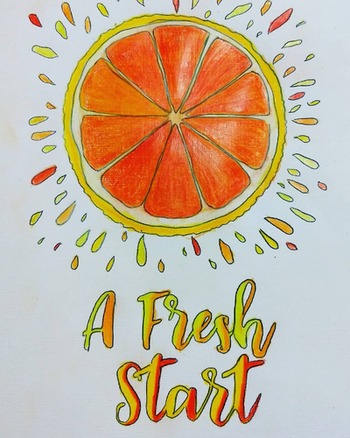 A Fresh
Start